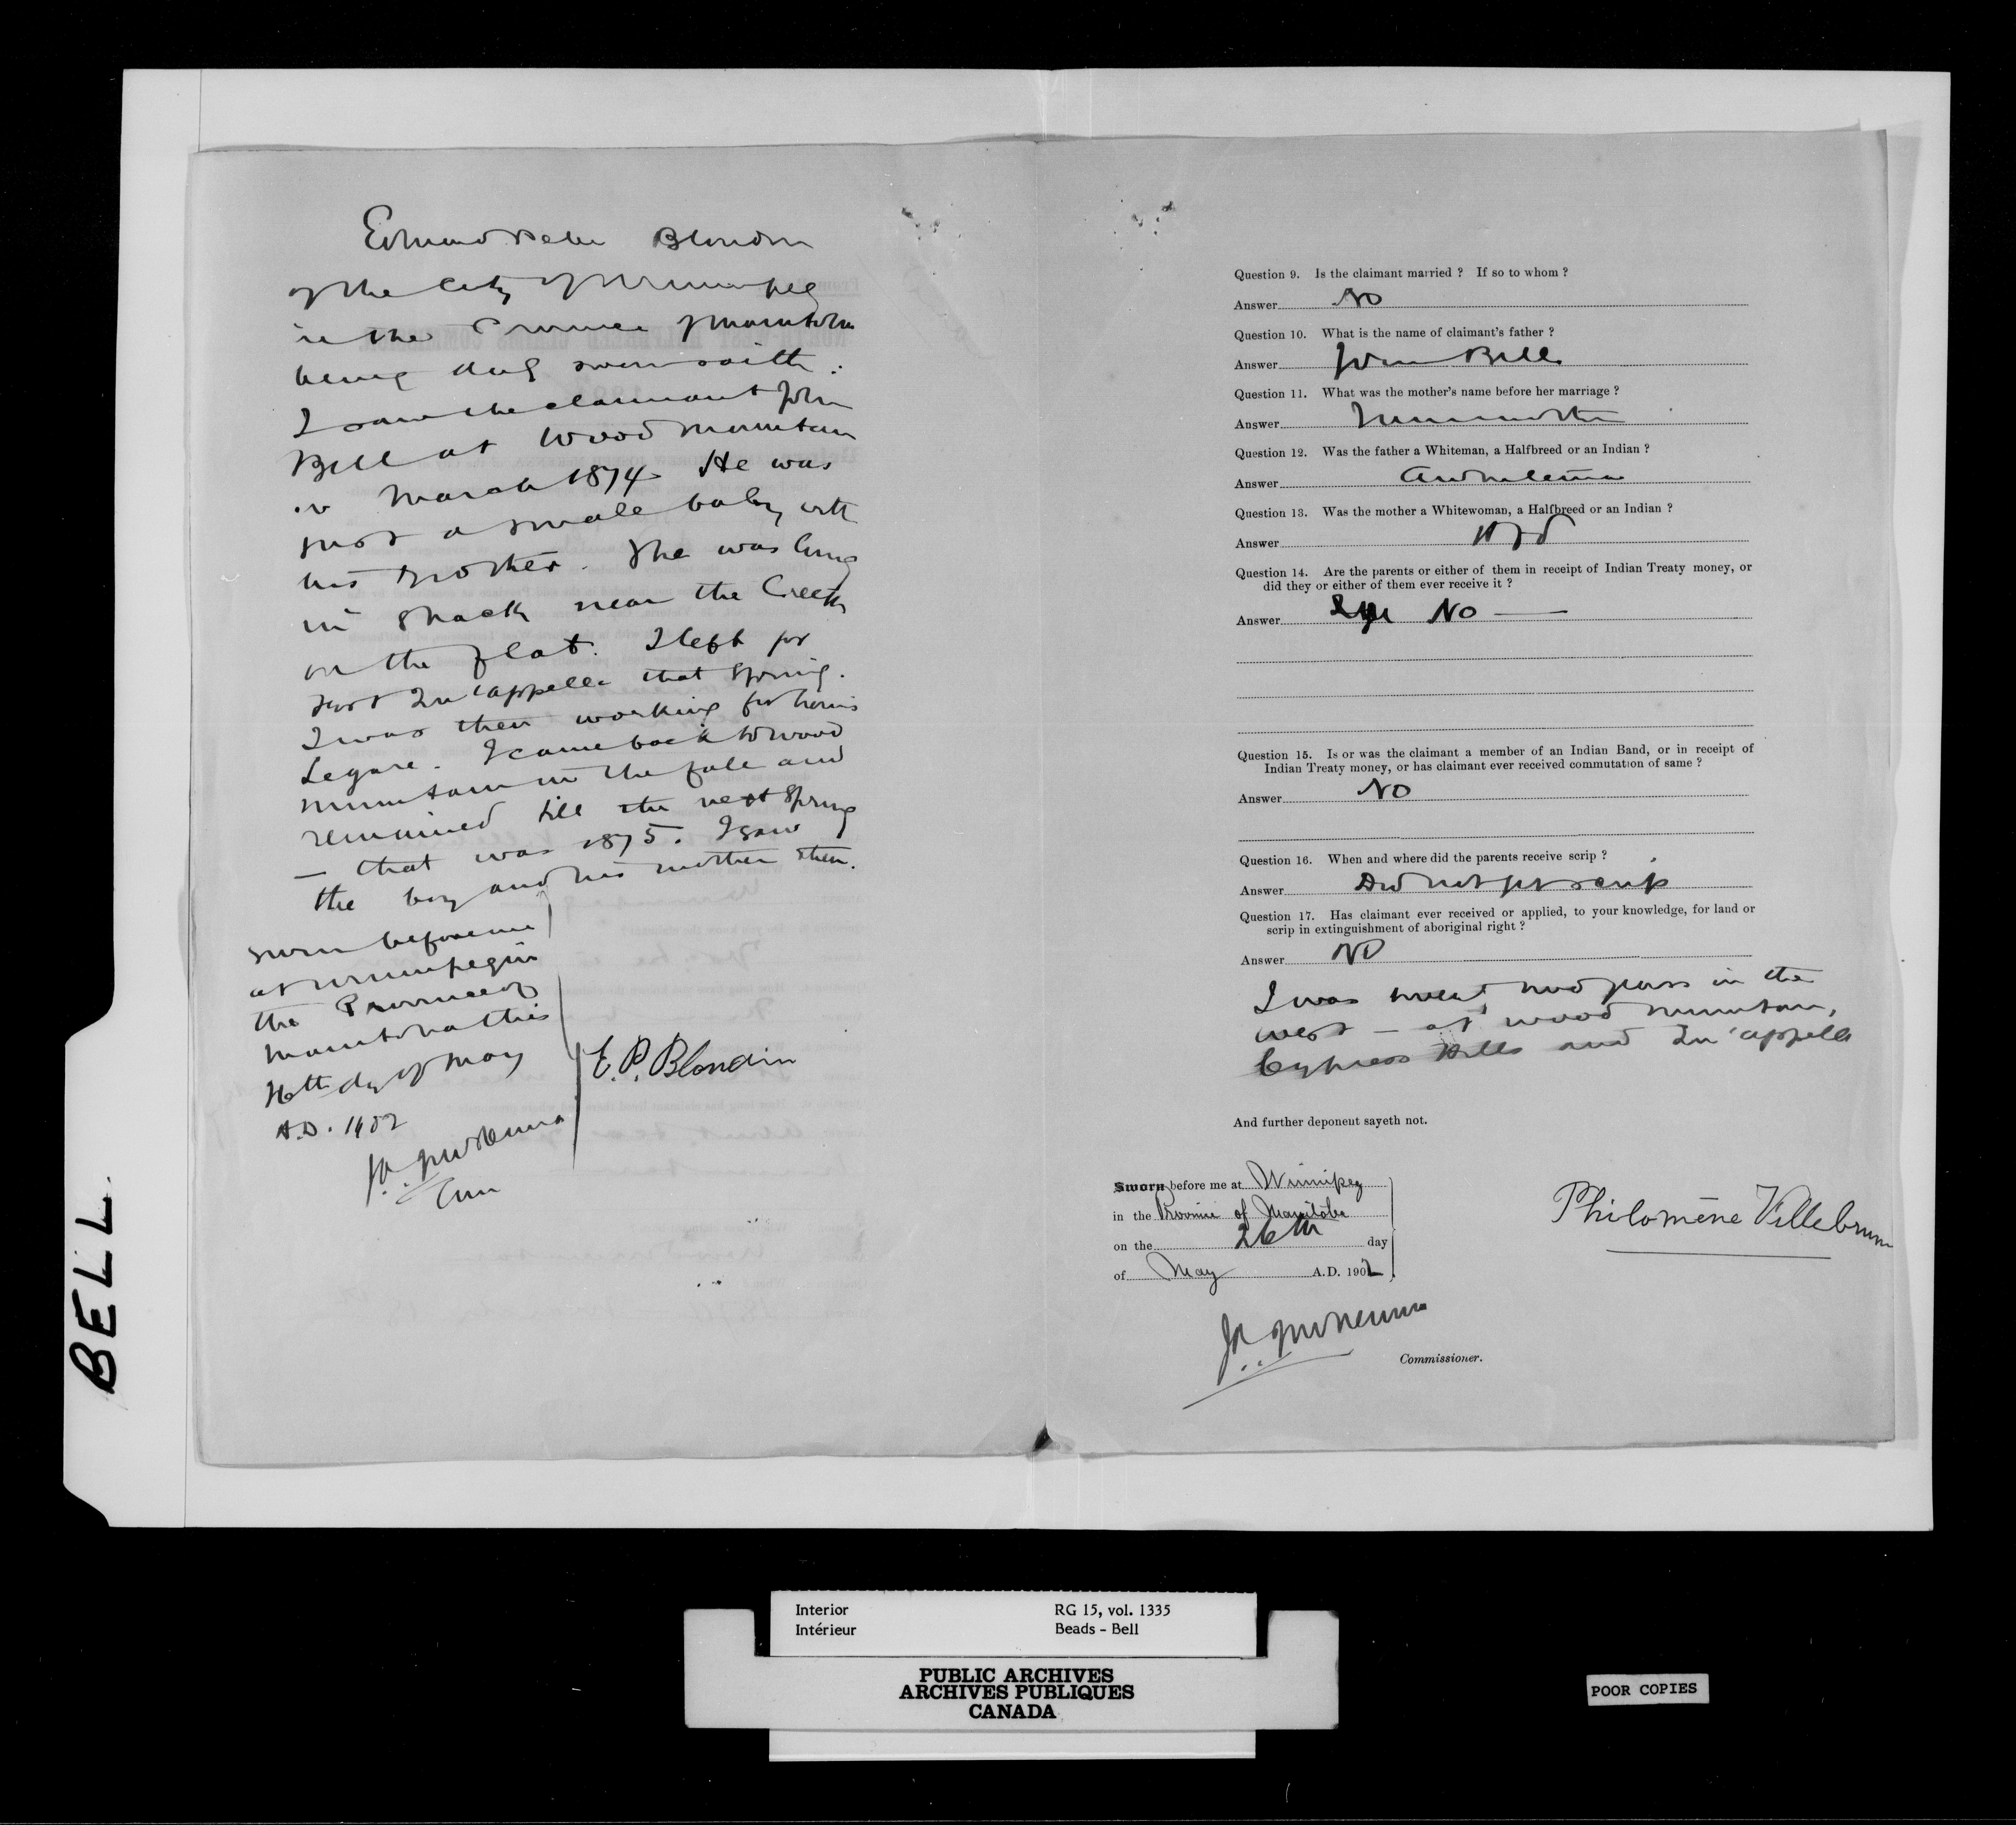 Edmund Peter Blondin
of the City of Winnipeg
in the Province of Manitoba
being duly sworn saith:
I saw the claimant John
Bell at Wood Mountain
in March 1874. He was
just a small baby with
his mother. She was living
in shack near the Creek
on the flat. I left for
Fort Qu'appelle that spring.
I was then working for
Legare. I came back to Wood
Mountain in the fall and
remained till the next spring
— that was 1875. I saw
the boy and his mother then.
Sworn before me
at Winnipeg in
the Province of
Manitoba this
day of May
A.D. 1902
E. P. Blondin
Question 9. Is the claimant married ? If so to whom ?
Answer No
Question 10. What is the name of claimant's father ?
Answer Bell
Question 11. What was the mother's name before her marriage ?
Answer
Question 12. Was the father a Whiteman, a Halfbreed or an Indian ?
Answer
Question 13. Was the mother a Whitewoman, a Halfbreed or an Indian ?
Answer
Question 14. Are the parents or either of them in receipt of Indian Treaty money, or
did they or either of them ever receive it ?
Answer No —
Question 15. Is or was the claimant a member of an Indian Band, or in receipt of
Indian Treaty money, or has claimant ever received commutation of same ?
Answer No
Question 16. When and where did the parents receive scrip ?
Answer Did not get scrip
Question 17. Has claimant ever received or applied, to your knowledge, for land or
scrip in extinguishment of aboriginal right ?
Answer No
I was years in the
west — at Wood Mountain,
Cypress Hills and Qu'appelle
And further deponent sayeth not.
Sworn before me at Winnipeg
in the Province of Manitoba
on the 26th day
of May A.D. 1902
Philomène Villebrun
Commissioner.
BELL.
Interior RG 15, vol. 1335
Intérieur Beads - Bell
PUBLIC ARCHIVES
ARCHIVES PUBLIQUES
CANADA
POOR COPIES